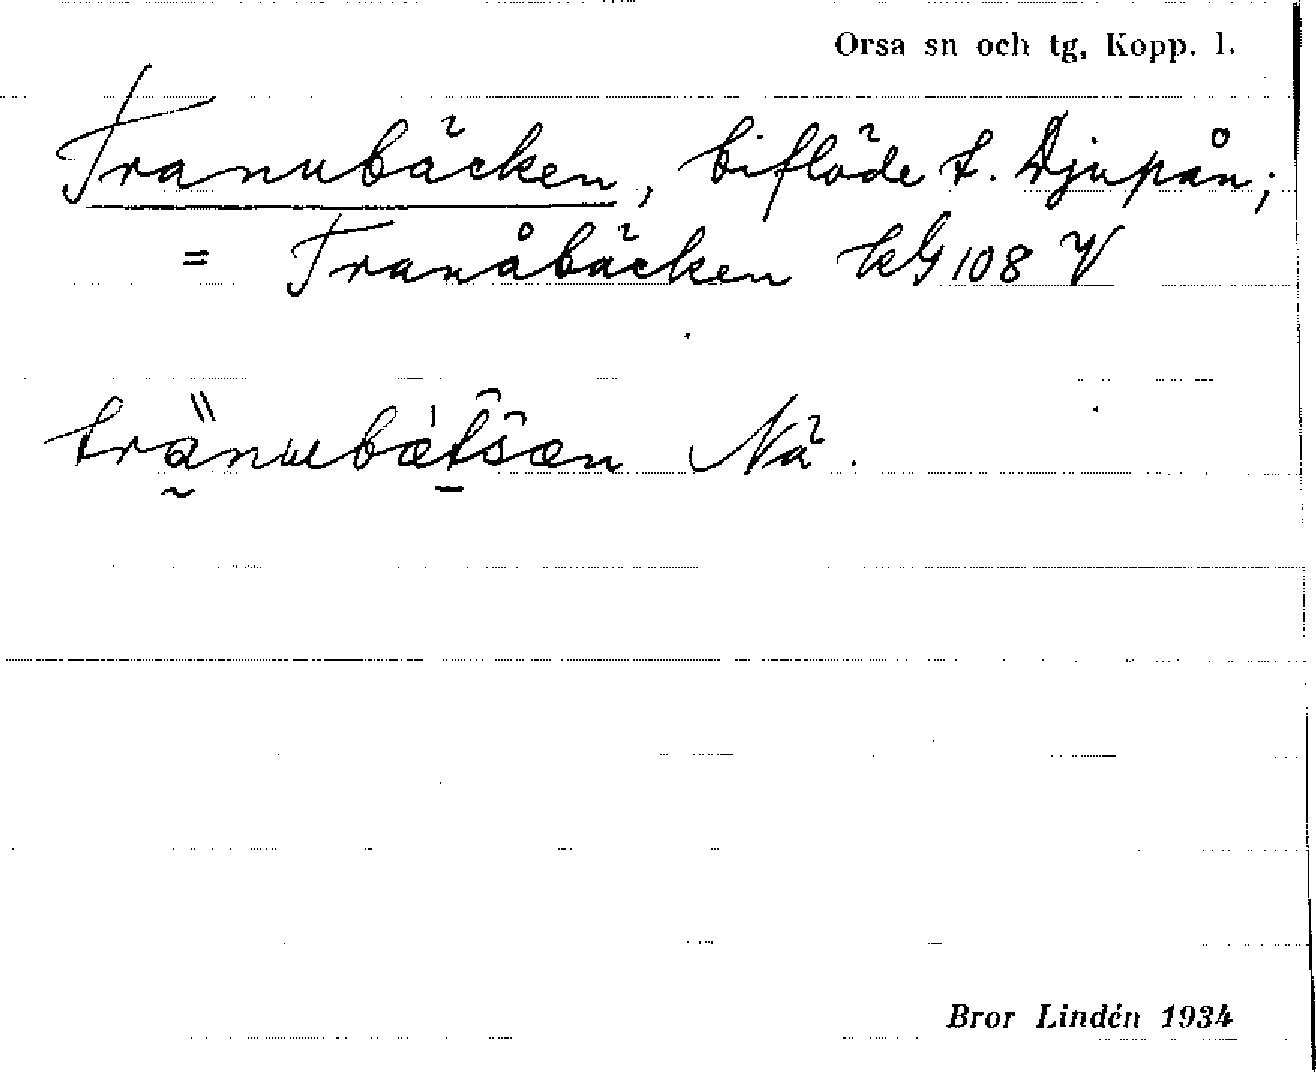 Orsa sn och tg, Kopp. l.
Tranubäcken, biflöde t. Djupån;
= Tranåbäcken kG 108 V
Nä.
Bror Lindén 1934